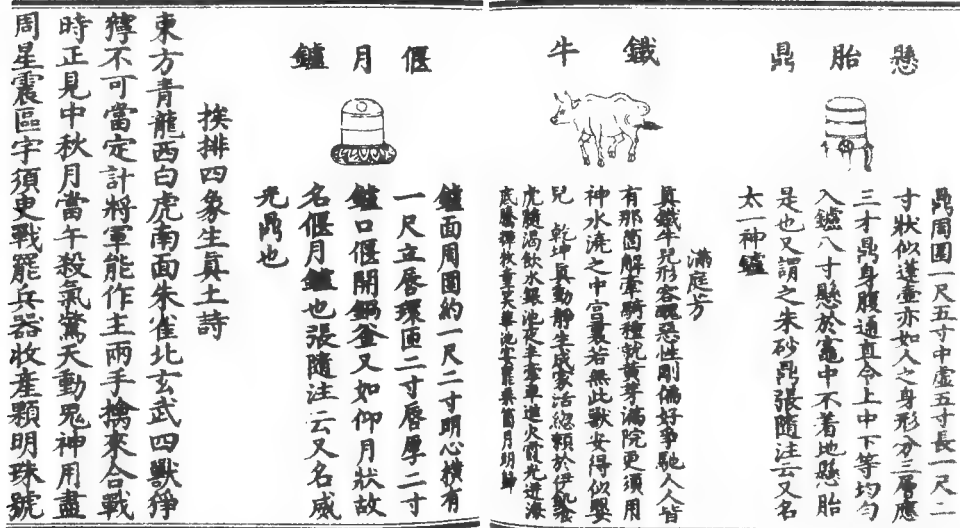 懸胎鼎
鼎周圍一尺五寸中虛五寸長一尺二
寸狀似蓬壺亦如人之身形分三層應
三才鼎身腹通直令上中下等均勻
入鑪八寸懸於竈中不着地懸胎
是也又謂之朱砂鼎張隨注云又名
太一神鑪
鐵牛
滿庭芳
真鐵牛兒形容醜惡性剛偏好爭馳人人皆
有那箇解牽騎種就黃芽滿院更須用
神水澆之中宮裏若無此獸安得似嬰
兒 乾坤真動靜生成家活總賴於伊飢餐
虎髓渴飲水銀池夜半牽車進火霞光迸海
底騰輝牧童笑華池宴罷乘箇月明歸
偃月鑪
鑪面周圍約一尺二寸明心橫有
一尺立唇環匝二寸唇厚二寸
鑪口偃開鍋釜又如仰月狀故
名偃月鑪也張隨注云又名威
光鼎也
挨排四象生真土詩
東方青龍西白虎南面朱雀北玄武四獸猙
獰不可當定計將軍能作主兩手擒來合戰
時正見中秋月當午殺氣驚天動鬼神用盡
周星震區宇須臾戰罷兵器收產顆明珠號